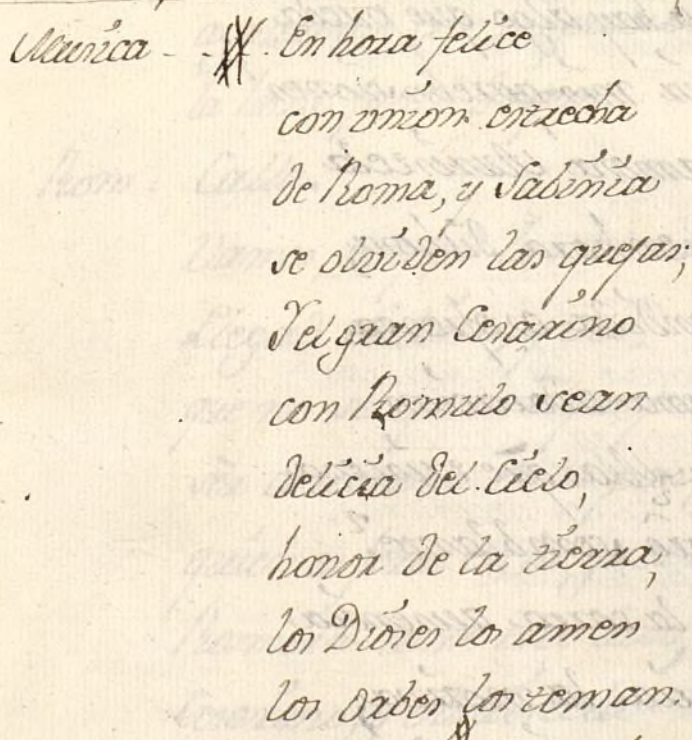 Musica - - # En hora felice
con union estrecha
de Roma, y Sabinia
se olviden las quejas;
Y el gran Cesarino
con Romulo sean
delicia del Cielo,
honor de la tierra,
los Dioses los amen
los orbes los teman.